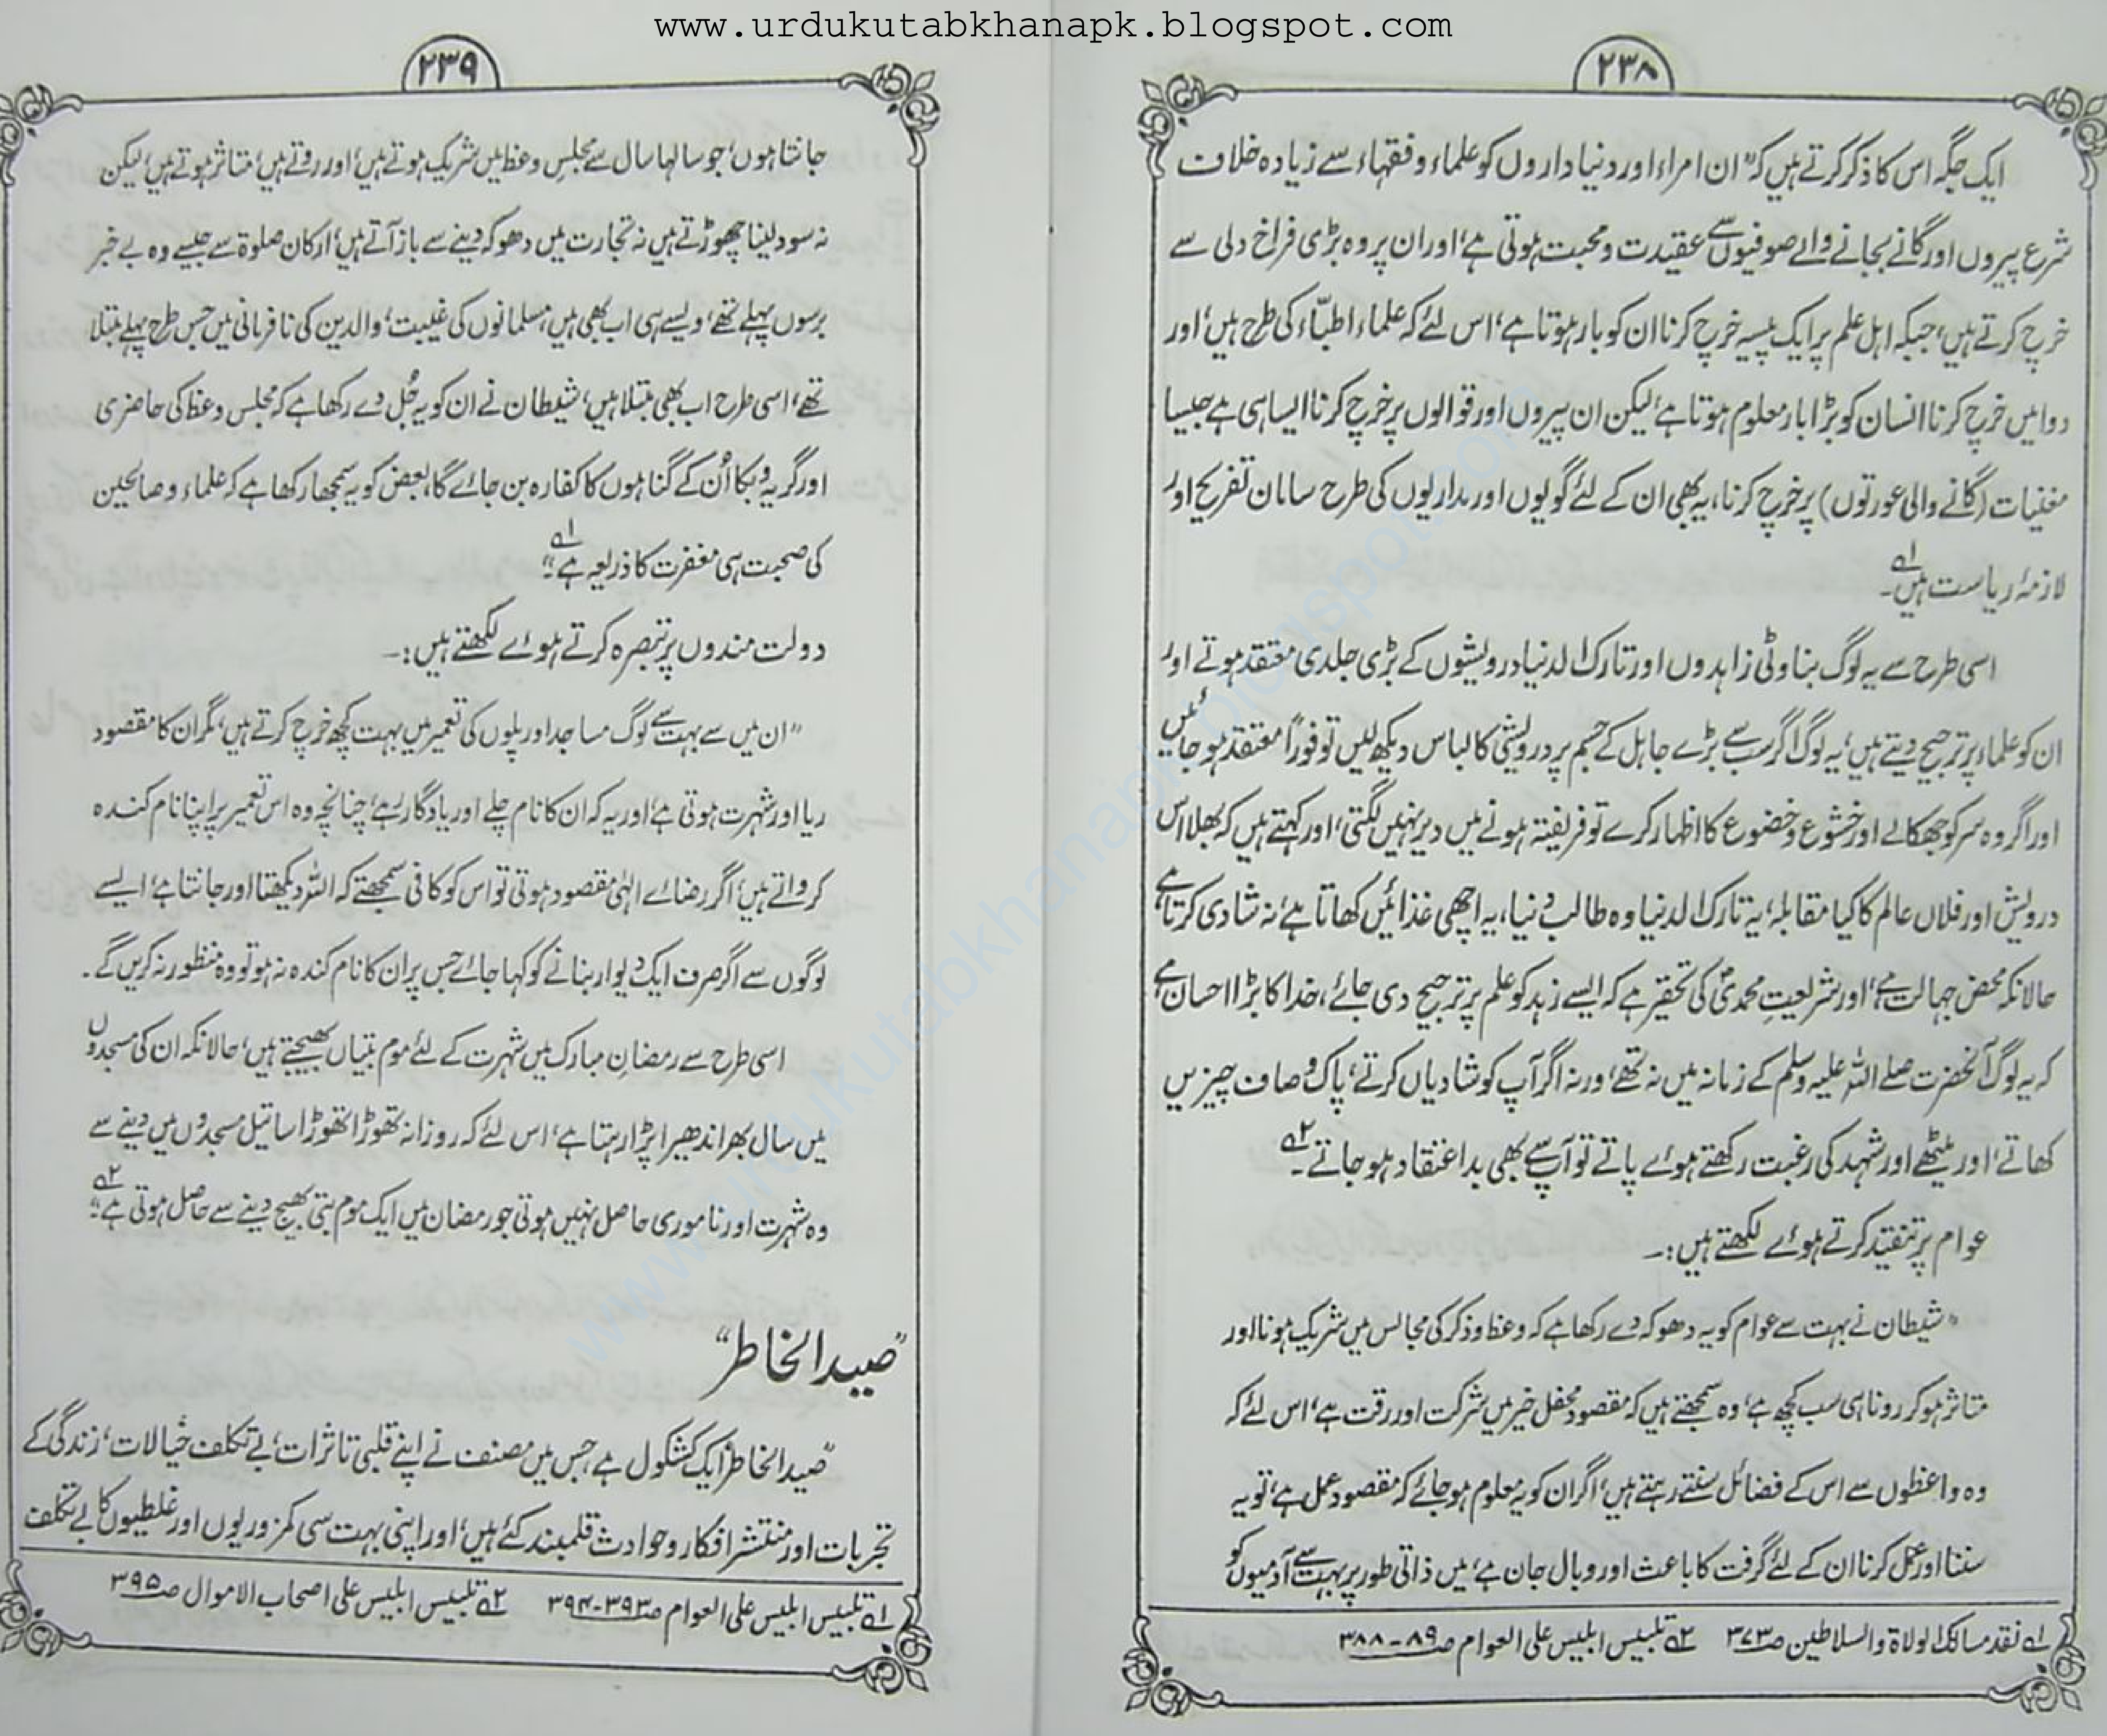 www.urdukutabkhanapk.blogspot.com
۲۳۸
ایک جگہ اس کا ذکر کرتے ہیں کہ "ان امراء اور دنیا داروں کو علماء و فقہاء سے زیادہ خلاف
شرع پیروں اور گانے بجانے والے صوفیوں سے عقیدت و محبت ہوتی ہے، اور ان پر وہ بڑی فراخ دلی سے
خرچ کرتے ہیں، جبکہ اہل علم پر ایک پیسہ خرچ کرنا ان کو بار ہوتا ہے، اس لئے کہ علماء اطبّاء کی طرح ہیں، اور
دوا میں خرچ کرنا انسان کو بڑا بار معلوم ہوتا ہے، لیکن ان پیروں اور قوالوں پر خرچ کرنا ایسا ہی ہے جیسا
مغنیات (گانے والی عورتوں) پر خرچ کرنا، یہ بھی ان کے لئے گویوں اور مداریوں کی طرح سامان تفریح اور
لازمۂ ریاست ہیں۔ ؎۱
اسی طرح سے یہ لوگ بناوٹی زاہدوں اور تارک الدنیا درویشوں کے بڑی جلدی معتقد ہوتے اور
ان کو علماء پر ترجیح دیتے ہیں، یہ لوگ اگر سب سے بڑے جاہل کے جسم پر درویشی کا لباس دیکھ لیں تو فوراً معتقد ہو جائیں
اور اگر وہ سر کو جھکالے اور خشوع و خضوع کا اظہار کرے تو فریفتہ ہونے میں دیر نہیں لگتی، اور کہتے ہیں کہ بھلا اس
درویش اور فلاں عالم کا کیا مقابلہ، یہ تارک الدنیا وہ طالب دنیا، یہ اچھی غذائیں کھاتا ہے، نہ شادی کرتا ہے،
حالانکہ محض جہالت ہے، اور شریعتِ محمدیؐ کی تحقیر ہے کہ ایسے زہد کو علم پر ترجیح دی جائے، خدا کا بڑا احسان ہے
کہ یہ لوگ آنحضرت صلے اللہ علیہ وسلم کے زمانہ میں نہ تھے، ورنہ اگر آپ کو شادیاں کرتے، پاک و صاف چیزیں
کھاتے، اور میٹھے اور شہد کی رغبت رکھتے ہوئے پاتے تو آپ سے بھی بد اعتقاد ہو جاتے۔ ؎۲
عوام پر تنقید کرتے ہوئے لکھتے ہیں:۔
"شیطان نے بہت سے عوام کو یہ دھوکہ دے رکھا ہے کہ وعظ و ذکر کی مجالس میں شریک ہونا اور
متاثر ہو کر رونا ہی سب کچھ ہے، وہ سمجھتے ہیں کہ مقصود محفل خیر میں شرکت اور رقت ہے، اس لئے کہ
وہ واعظوں سے اس کے فضائل سنتے رہتے ہیں، اگر ان کو یہ معلوم ہو جائے کہ مقصود عمل ہے، تو یہ
سننا اور عمل کرنا ان کے لئے گرفت کا باعث اور وبال جان ہے، میں ذاتی طور پر بہت سے آدمیوں کو
؎۱ نقد مسالک الولاۃ والسلاطین ص۳۷۳ ؎۲ تلبیس ابلیس علی العوام ص۸۹-۳۸۸
۲۳۹
جانتا ہوں، جو سالہا سال سے مجلسِ وعظ میں شریک ہوتے ہیں، اور روتے ہیں، متاثر ہوتے ہیں، لیکن
نہ سود لینا چھوڑتے ہیں نہ تجارت میں دھوکہ دینے سے باز آتے ہیں، ارکان صلوۃ سے جیسے وہ بے خبر
برسوں پہلے تھے، ویسے ہی اب بھی ہیں، مسلمانوں کی غیبت، والدین کی نافرمانی میں جس طرح پہلے مبتلا
تھے، اسی طرح اب بھی مبتلا ہیں، شیطان نے ان کو یہ جُل دے رکھا ہے کہ مجلس وعظ کی حاضری
اور گریہ و بکا اُن کے گناہوں کا کفارہ بن جائے گا، بعض کو یہ سمجھا رکھا ہے کہ علماء و صالحین
کی صحبت ہی مغفرت کا ذریعہ ہے۔" ؎۱
دولت مندوں پر تبصرہ کرتے ہوئے لکھتے ہیں:۔
"ان میں سے بہت سے لوگ مساجد اور پلوں کی تعمیر میں بہت کچھ خرچ کرتے ہیں، مگر ان کا مقصود
ریا اور شہرت ہوتی ہے، اور یہ کہ ان کا نام چلے اور یادگار رہے، چنانچہ وہ اس تعمیر پر اپنا نام کندہ
کرواتے ہیں، اگر رضائے الہٰی مقصود ہوتی تو اس کو کافی سمجھتے کہ اللہ دیکھتا اور جانتا ہے، ایسے
لوگوں سے اگر صرف ایک دیوار بنانے کو کہا جائے جس پر ان کا نام کندہ نہ ہو تو وہ منظور نہ کریں گے۔
اسی طرح سے رمضان مبارک میں شہرت کے لئے موم بتیاں بھیجتے ہیں، حالانکہ ان کی مسجدوں
میں سال بھر اندھیرا پڑا رہتا ہے، اس لئے کہ روزانہ تھوڑا تھوڑا سا تیل مسجدوں میں دینے سے
وہ شہرت اور ناموری حاصل نہیں ہوتی جو رمضان میں ایک موم بتی بھیج دینے سے حاصل ہوتی ہے۔" ؎۲
"صید الخاطر"
"صید الخاطر" ایک کشکول ہے جس میں مصنف نے اپنے قلبی تاثرات، بے تکلف خیالات، زندگی کے
تجربات اور منتشر افکار و حوادث قلمبند کئے ہیں، اور اپنی بہت سی کمزوریوں اور غلطیوں کا بے تکلف
؎۱ تلبیس ابلیس علی العوام ص۳۹۳-۳۹۴ ؎۲ تلبیس ابلیس علی اصحاب الاموال ص۳۹۵
www.urdukutabkhanapk.blogspot.com